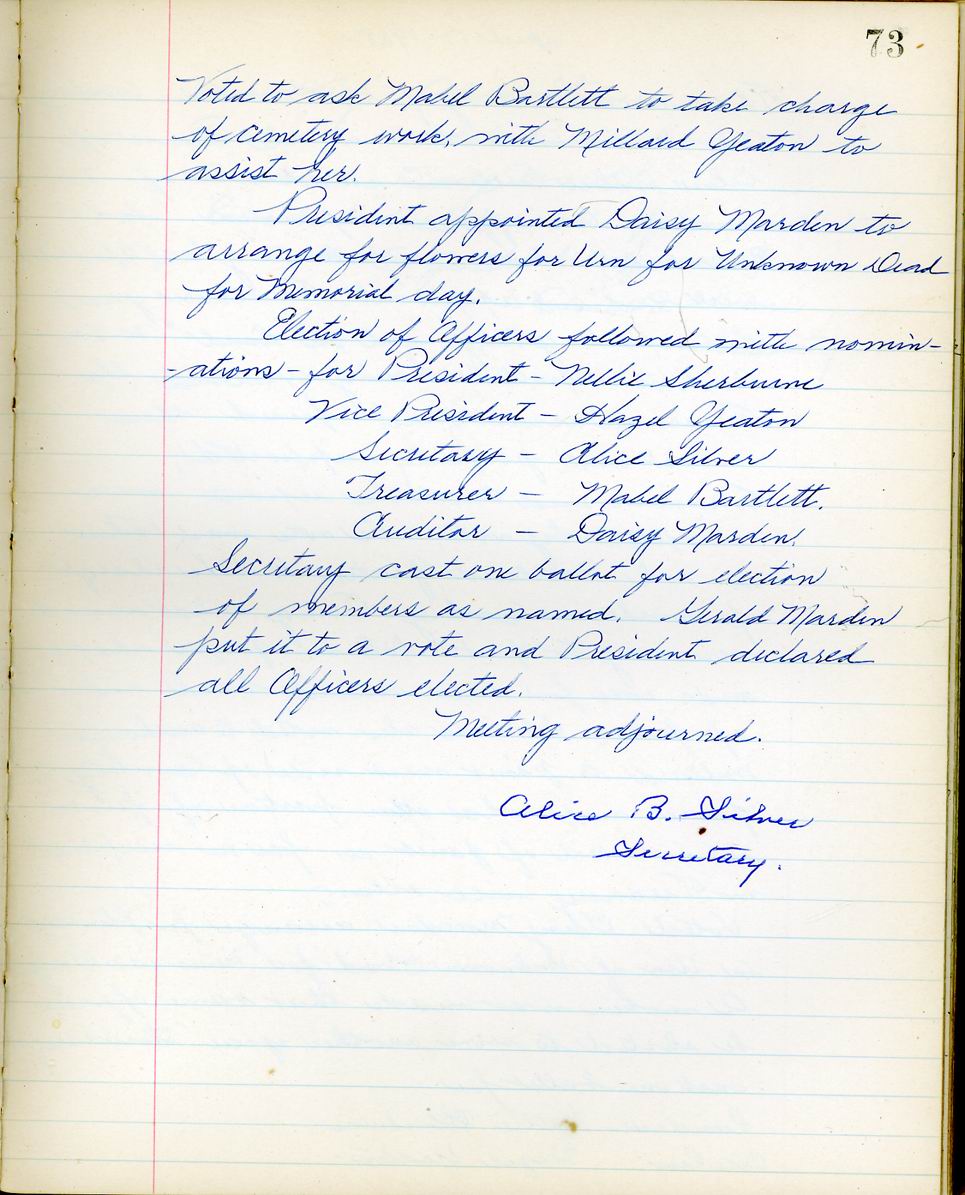 73
Voted to ask Mabel Bartlett to take charge
of cemetery work, with Millard Yeaton to
assist her.
President appointed Daisy Marden to
arrange for flowers for Urn for Unknown Dead
for Memorial day.
Election of Officers followed with nomin-
-ations - for President - Nellie Sherburne
Vice President - Hazel Yeaton
Secretary - Alice Silver
Treasurer - Mabel Bartlett.
Auditor - Daisy Marden.
Secretary cast one ballot for election
of members as named. Gerald Marden
put it to a vote and President declared
all Officers elected.
Meeting adjourned.
Alice B. Silver
Secretary.